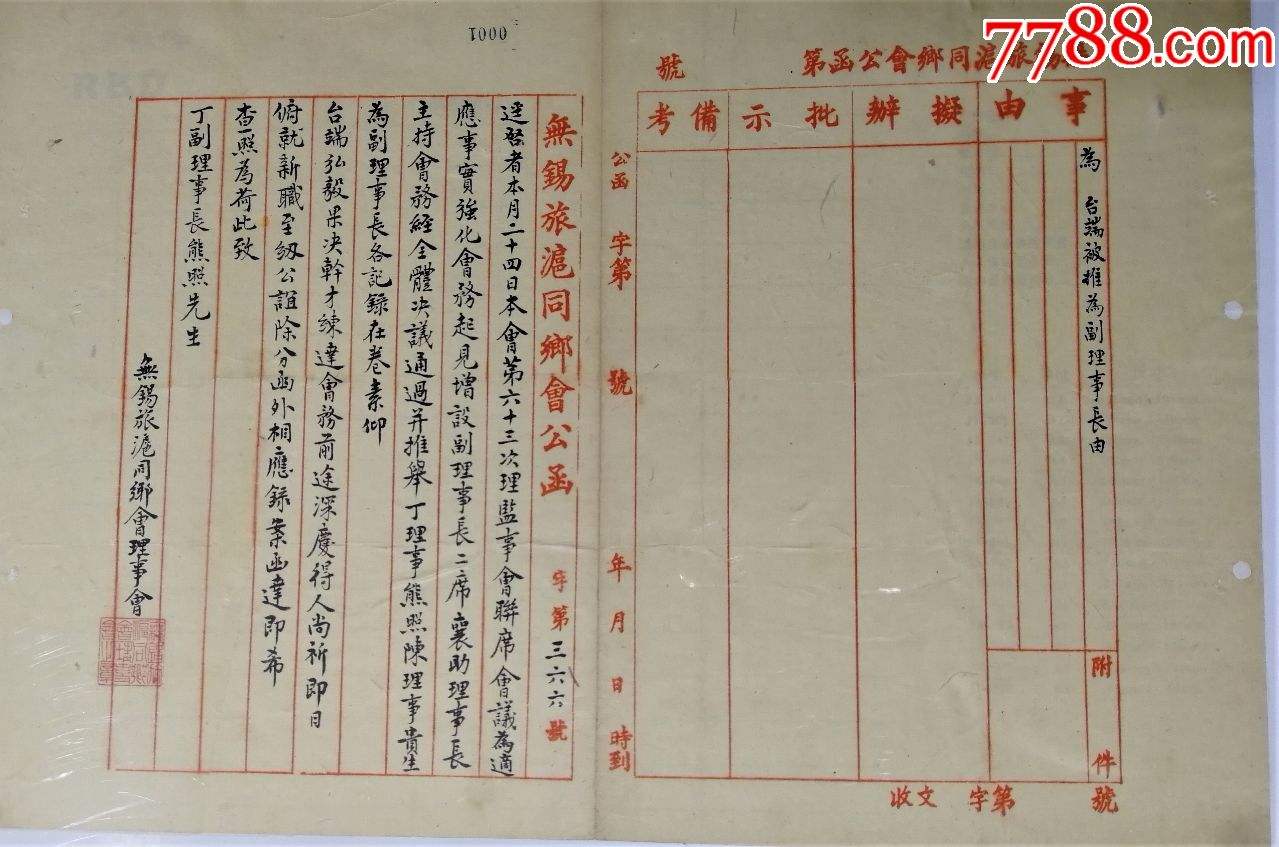 7788.com
0001
旅滬同鄉會公函第 號
事由
擬辦
批示
備考
為 台端被推為副理事長由
附件
收文 字第 號
公函 字第 號 年 月 日 時到
無錫旅滬同鄉會公函 字第三六六號
逕啓者本月二十四日本會第六十三次理監事會聯席會議為適
應事實強化會務起見增設副理事長二席襄助理事長
主持會務經全體決議通過并推舉丁理事熊照陳理事貴生
為副理事長各記錄在卷素仰
台端弘毅果決幹才練達會務前途深慶得人尚祈即日
俯就新職至紉公誼除分函外相應錄案函達即希
查照為荷此致
丁副理事長熊照先生
無錫旅滬同鄉會理事會